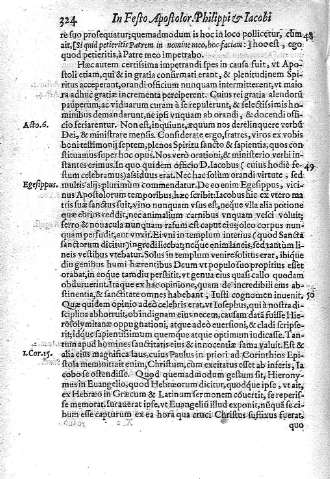 324 In Festo Apostolor. Philippi & Iacobi
re suo prosequatur; quemadmodum is hoc in loco pollicetur, cùm 48
ait, [Si quid petieritis Patrem in nomine meo, hoc faciam:] hoc est, ego
quod petieritis, à Patre meo impetrabo.
Hæc autem certissima impetrandi spes in causa fuit, vt Apo-
stoli etiam, qui & in gratia confirmati erant, & plenitudinem Spi-
ritus acceperant, orandi officium nunquam intermitterent, vt maio
ra adhuc gratiæ incrementa perciperent. Cuius rei gratia alendorũ
pauperum, ac viduarum curam à se repulerunt, & selectissimis ho-
minibus demandarunt, ne ipsi vnquam ab orandi, & docendi offi-
Acto. 6. cio feriarentur. Non est, inquiunt, æquum nos derelinquere verbũ
Dei, & ministrare mensis. Considerate ergo, fratres, viros ex vobis
boni testimonij septem, plenos Spiritu sancto & sapientia, quos con-
stituamus super hoc opus. Nos verò orationi, & ministerio verbi in-
stantes erimus. In quo quidem officio D. Iacobus ( cuius hodiè fe- 49
stum celebramus) assiduus erat. Nec hac solum orandi virtute, sed
Egesippus. multis alijs plurimum commendatur. De eo enim Egesippus, vici-
nus Apostolorum temporibus, hæc scribit: Iacobus hic ex vtero ma-
tris suæ sanctus fuit, vino nunquam vsus est, neque vlla alia potione
quæ ebrios reddit, nec animalium carnibus vnquam vesci voluit;
ferro & nouacula nunquam rasum est caput eius, oleo corpus nun-
quam perfudit, nec vnxit. Ei vni in templum interius (quod Sancta
sanctorum dicitur) ingredi licebat; neque enim laneis, sed tantùm li-
neis vestibus vtebatur. Solus in templum venire solitus erat, ibique
diu genibus humi hærentibus Deum vt populo suo propitius esset
orabat, in eoque tamdiu persistit, vt genua eius quasi callo quodam
obduruerint. Itaque ex hac opinione, quam de incredibili eius ab-
stinentia, & sanctitate omnes habebant, Iusti cognomen inuenit. 50
Quæ quidem opinio adeò celebris erat, vt Iosephus, qui à nostra di-
sciplina abhorruit, ob indignam eius necem, causam datã fuisse Hie-
rosolymitanæ oppugnationi, atque adeò euersioni, & cladi scripse-
rit, idque sapientissimum quemque atque optimum iudicasse. Tan-
tum apud homines sanctitatis eius & innocẽtiæ fama valuit. Est &
1. Cor. 15. alia eius magnifica laus, cuius Paulus in priori ad Corinthios Epi-
stola memorauit enim, Christum, cùm excitatus esset ab inferis, Ia
cobo se ostendisse. Quod quemadmodum gestum sit, Hierony-
mus in Euangelio, quod Hebræorum dicitur, quodque ipse, vt ait,
ex Hebræo in Græcum & Latinum sermonem cõuertit, se reperis-
se memorat. Iurauerat ipse, vt Euangelio illud exponit, nũquã se ci-
bum esse capturum ex ea hora qua cruci Christus suffixus fuerat,
quo